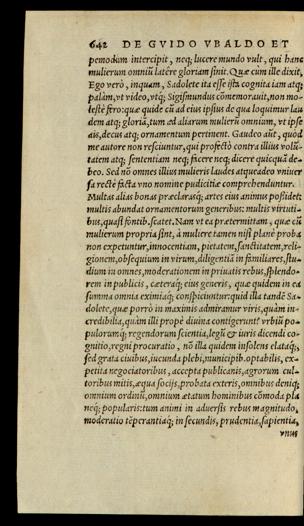 642 DE GVIDO VBALDO ET
pemodum intercipit, neq; lucere mundo vult, qui hanc
mulierum omniũ latére gloriam sinit. Quæ cum ille dixit,
Ego verò, inquam, Sadolete ita esse ista cognita iam atq;
palàm, vt video, vtq; Sigismundus cõmemorauit, non mo-
lestè fero: quæ quide cũ ad eius ipsius de qua loquimur lau
dem atq; gloriã, tum ad aliarum mulierũ omnium, vt ipse
ais, decus atq; ornamentum pertinent. Gaudeo aũt, quòd
me autore non resciuntur, qui profectò contra illius volũ-
tatem atq; sententiam neq; facere neq; dicere quicquã de-
beo. Sed nõ omnes illius mulieris laudes atque adeo vniuer
sa rectè facta vno nomine pudicitiæ comprehenduntur.
Multas alias bonas præclarasq; artes eius animus possidet:
multis abundat ornamentorum generibus: multis virtuti-
bus, quasi fontib. scatet. Nam vt ea prætermittam, quæ cũ
mulierum propria sint, à muliere tamen nisi planè proba
non expetuntur, innocentiam, pietatem, sanctitatem, reli-
gionem, obsequium in virum, diligentiã in familiares, stu-
dium in omnes, moderationem in priuatis rebus, splendo-
rem in publicis, cæteraq; eius generis, quæ quidem in ea
summa omnia eximiaq; conspiciuntur: quid illa tandẽ Sa-
dolete, quæ porrò in maximis admiramur viris, quàm in-
credibilia, quàm illi propè diuina contigerunt? vrbiũ po-
pulorumq; regendorum scientia, legũ & iuris dicendi co-
gnitio, regni procuratio, nõ illa quidem insolens elataq;,
sed grata ciuibus, iucunda plebi, municipib. optabilis, ex-
petita negociatoribus, accepta publicanis, agrorum cul-
toribus mitis, æqua socijs, probata exteris, omnibus deniq;
omnium ordinũ, omnium ætatum hominibus cõmoda pla
neq; popularis: tum animi in aduersis rebus magnitudo,
moderatio tẽperantiaq; in secundis, prudentia, sapientia,
vnus